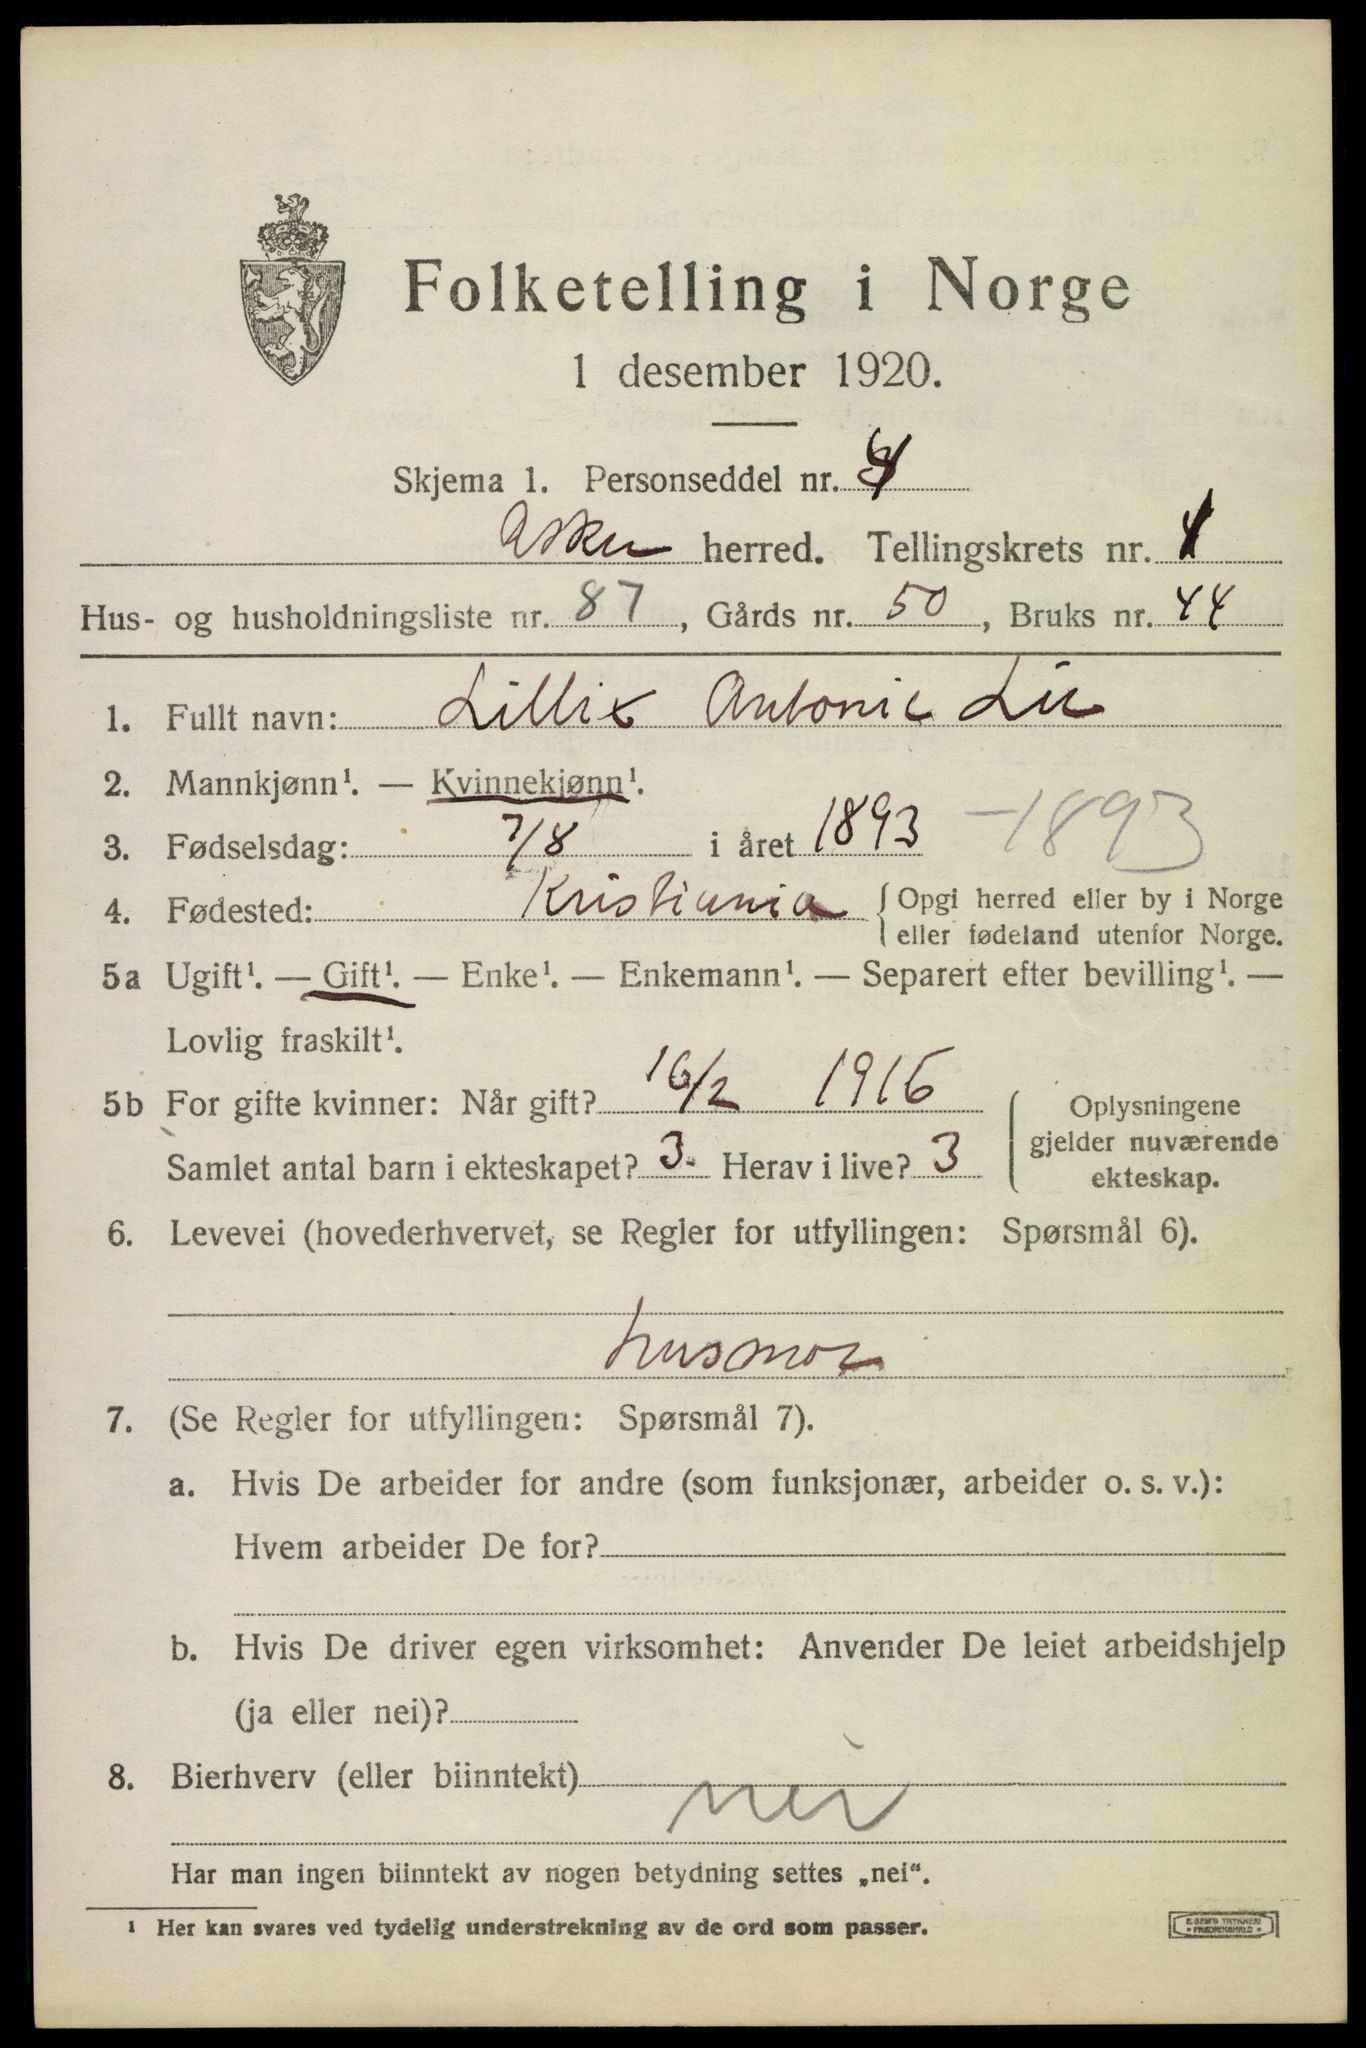 Folketelling i Norge
1 desember 1920.
Skjema 1. Personseddel nr. 4
Asker herred. Tellingskrets nr. 4
Hus- og husholdningsliste nr. 87, Gårds nr. 50, Bruks nr. 44
1. Fullt navn: Lillix Antonie Lie
2. Mannkjønn¹. — Kvinnekjønn¹.
3. Fødselsdag: 7/8 i året 1893 -1893
4. Fødested: Kristiania { Opgi herred eller by i Norge
eller fødeland utenfor Norge.
5a Ugift¹. — Gift¹. — Enke¹. — Enkemann¹. — Separert efter bevilling¹. —
Lovlig fraskilt¹.
5b For gifte kvinner: Når gift? 16/2 1916
Samlet antal barn i ekteskapet? 3. Herav i live? 3
Oplysningene
gjelder nuværende
ekteskap.
6. Levevei (hovederhvervet, se Regler for utfyllingen: Spørsmål 6).
husmor
7. (Se Regler for utfyllingen: Spørsmål 7).
a. Hvis De arbeider for andre (som funksjonær, arbeider o. s. v.):
Hvem arbeider De for?
b. Hvis De driver egen virksomhet: Anvender De leiet arbeidshjelp
(ja eller nei)?
8. Bierhverv (eller biinntekt) nei
Har man ingen biinntekt av nogen betydning settes „nei“.
¹ Her kan svares ved tydelig understrekning av de ord som passer.
E. SEM'S TRYKKERI
• FREDRIKSHALD •